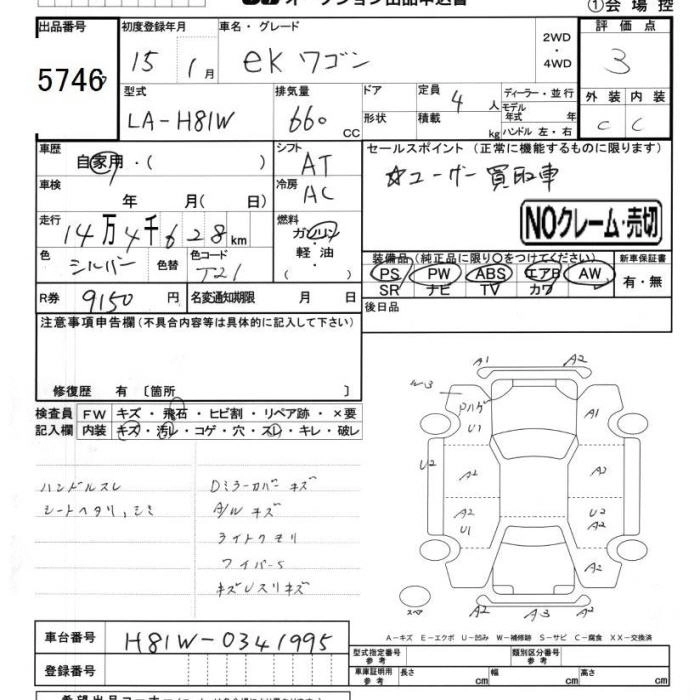 オークション出品申込書
①会場控
出品番号 初度登録年月 車名・グレード 2WD・4WD 評価点
5746 15 1月 eKワゴン 3
型式 排気量 ドア 定員 4人 ディーラー・並行 外装 内装
モデル年式 年
LA-H81W 660CC 形状 積載 kg ハンドル 左・右 C C
車歴 自家用・( ) シフト AT セールスポイント (正常に機能するものに限ります)
☆ユーザー買取車
車検 年 月(日) 冷房 AC
NOクレーム・売切
走行 14万4千628km 燃料 ガソリン・軽油・( )
装備品(純正品に限り○をつけてください) 新車保証書
色 シルバー 色替 色コード T21
PS PW ABS エアB AW 有・無
SR ナビ TV カワ
R券 9150円 名変通知期限 月 日
後日品
注意事項申告欄(不具合内容等は具体的に記入して下さい)
修復歴 有〔箇所 〕
検査員記入欄 FW キズ・飛石・ヒビ割・リペア跡・×要
内装 キズ・汚レ・コゲ・穴・スレ・キレ・破レ
ハンドルスレ Dミラーカバーキズ
シートヘタリ,シミ A/Wキズ
ライトクモリ
ワイパーS
キズUスリキズ
A1 A2
W-3 Pハゲ A1
U1
U2 A2 A2
A2 U2
U1 A2
A2
スペア A2 A3 A2
A-キズ E-エクボ U-凹み W-補修跡 S-サビ C-腐食 XX-交換済
車台番号 H81W-0341995
型式指定番号 参考 類別区分番号 参考
登録番号 車庫証明用参考 長さ cm 幅 cm 高さ cm
希望出品コーナー